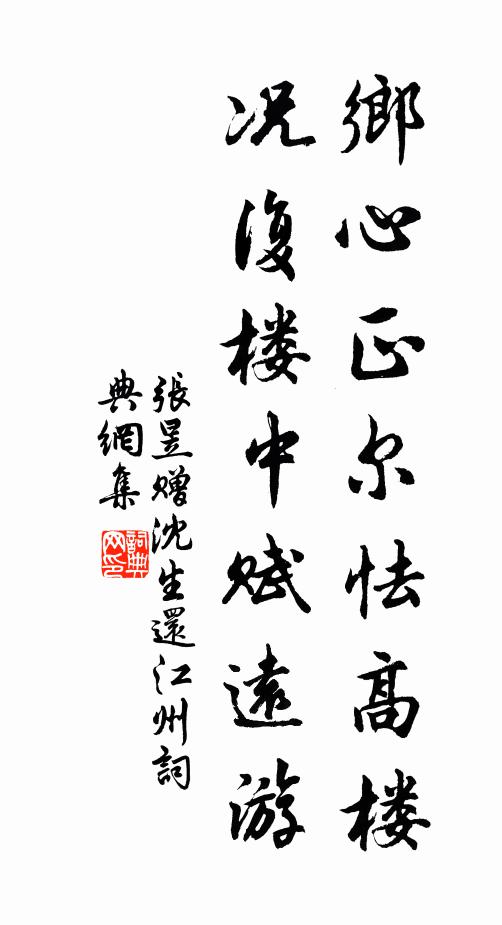 鄉心正尔怯高楼
况復楼中赋遠游
張昱赠沈生還江州詞
典網集
詞典
网印